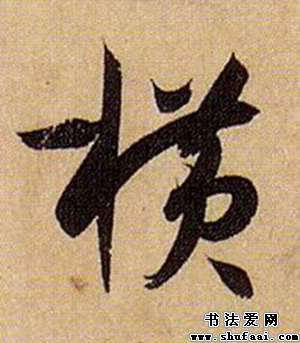 横
书法爱网
www.shufaai.com